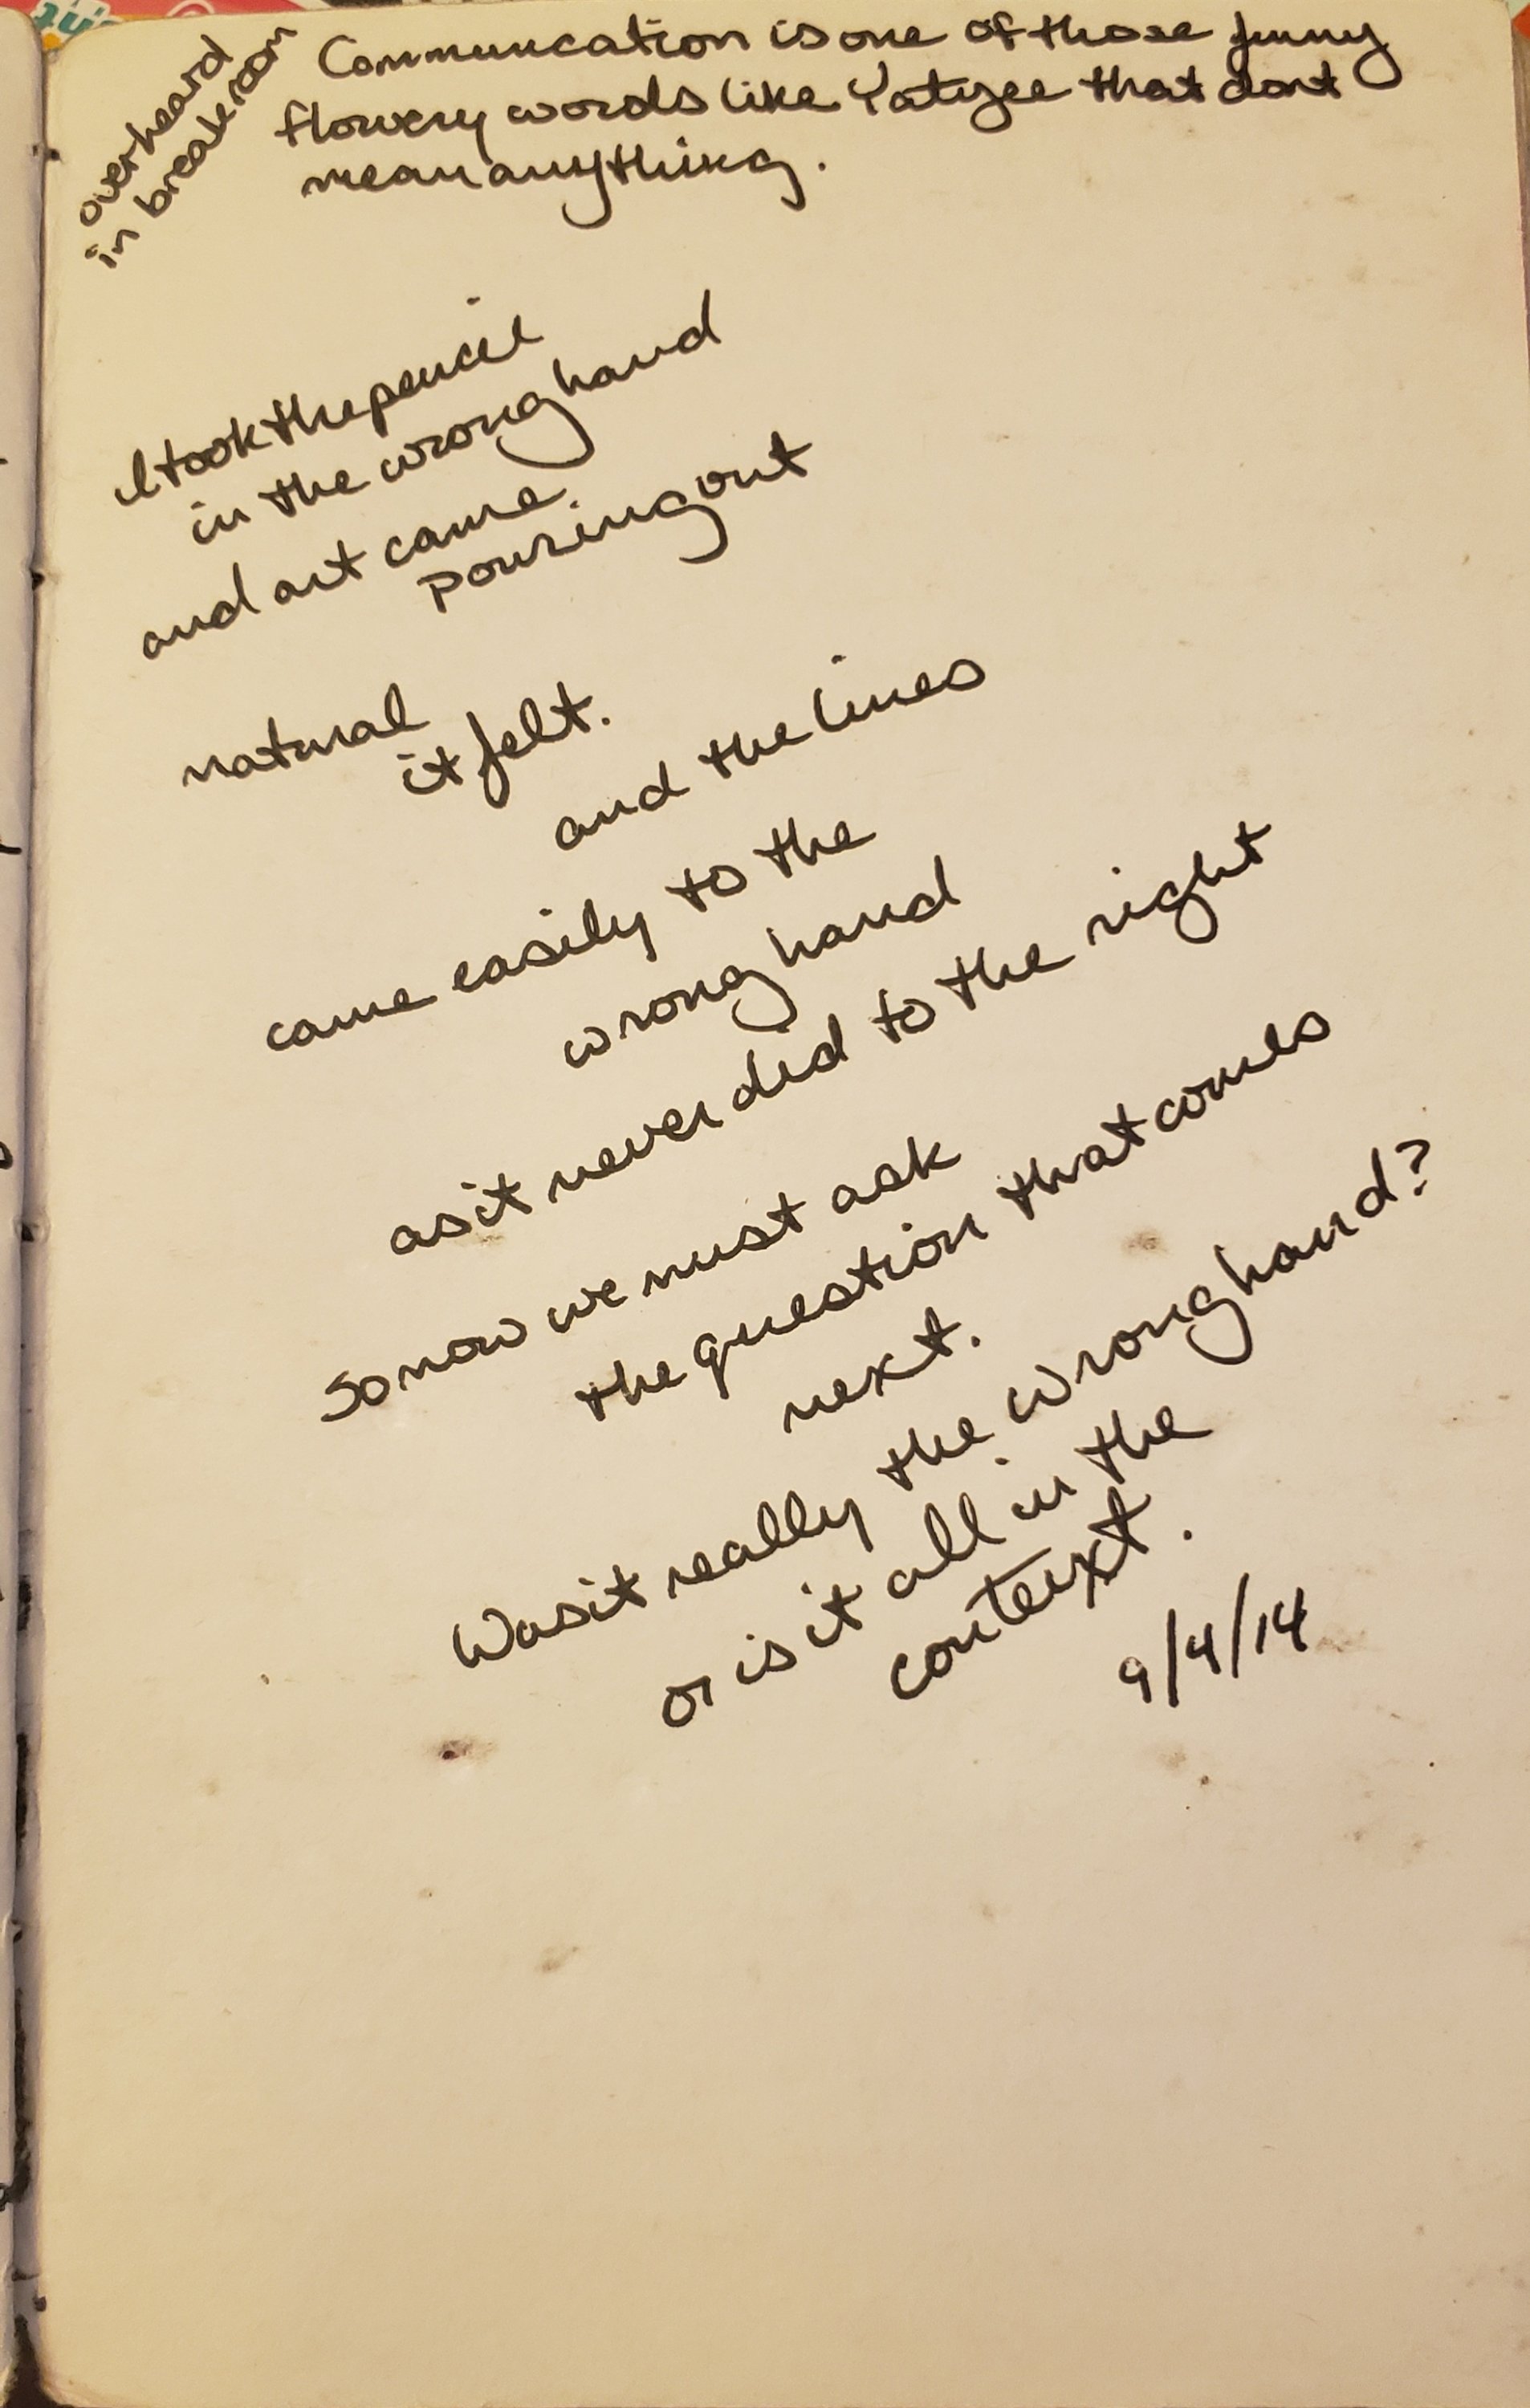 overheard
in breakroom
Communication is one of those funny
flowery words like Yatzee that dont
mean anything.
I took the pencil
in the wrong hand
and art came
pouring out
natural
it felt.
and the lines
came easily to the
wrong hand
as it never did to the right
so now we must ask
the question that comes
next.
Was it really the wrong hand?
or is it all in the
context.
9/4/14